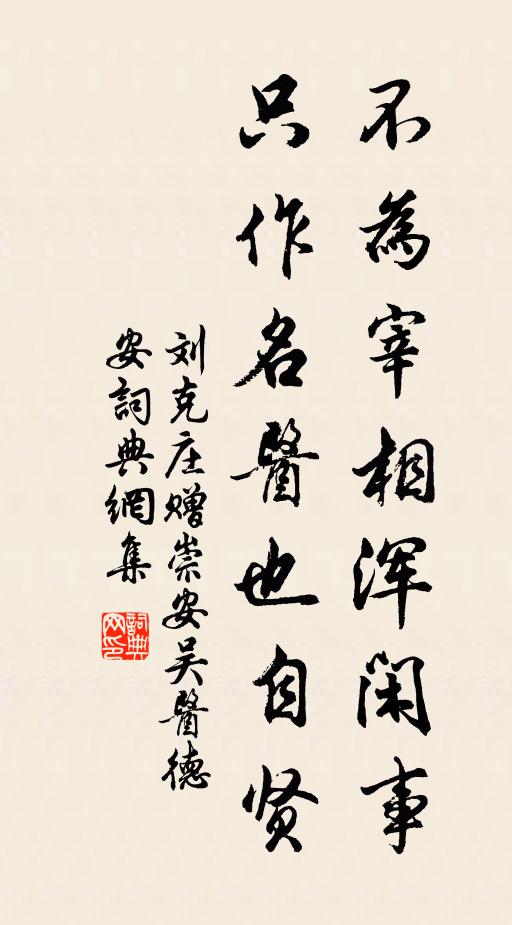 不為宰相浑闲事
只作名醫也自贤
刘克庄赠崇安吴醫德
安詞典網集
詞典网印